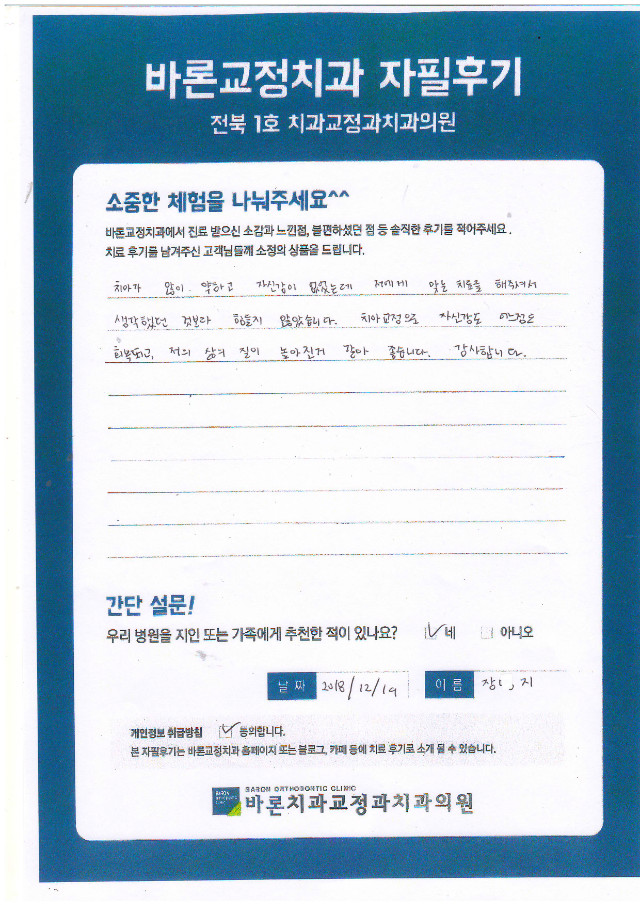 바론교정치과 자필후기
전북 1호 치과교정과치과의원
소중한 체험을 나눠주세요^^
바론교정치과에서 진료 받으신 소감과 느낀점, 불편하셨던 점 등 솔직한 후기를 적어주세요.
치료 후기를 남겨주신 고객님들께 소정의 상품을 드립니다.
치아가 많이 약하고 자신감이 없었는데 저에게 맞는 치료를 해주셔서
생각했던 것보다 힘들지 않았습니다. 치아교정으로 자신감도
회복되고, 저의 삶의 질이 높아진거 같아 좋습니다. 감사합니다.
간단 설문!
우리 병원을 지인 또는 가족에게 추천한 적이 있나요? 네 아니오
날짜 2018/12/19 이름 장 지
개인정보 취급방침 동의합니다.
본 자필후기는 바론교정치과 홈페이지 또는 블로그, 카페 등에 치료 후기로 소개 될 수 있습니다.
BARON ORTHODONTIC CLINIC
바론치과교정과치과의원